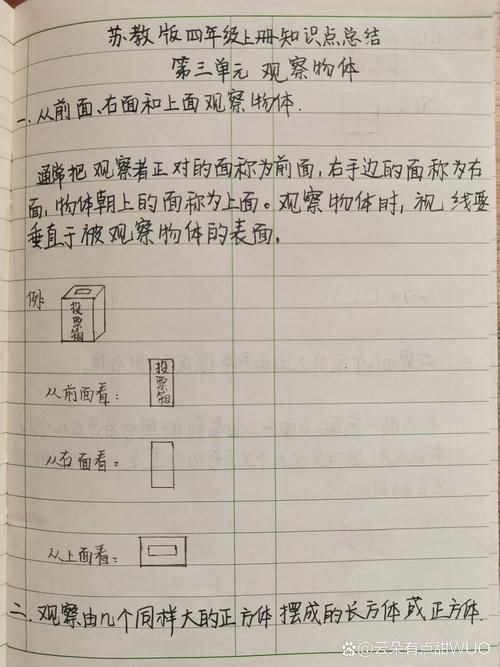 苏教版四年级上册知识点总结
第三单元 观察物体
一、从前面、右面和上面观察物体.
通常把观察者正对的面称为前面,右手边的面称为右
面,物体朝上的面称为上面。观察物体时,视线要
垂直于被观察物体的表面。
例:
投票箱
从前面看:
投票箱
从右面看:
从上面看:
二、观察由几个同样大的正方体摆成的长方体或正方体.
@云朵有点甜WUO